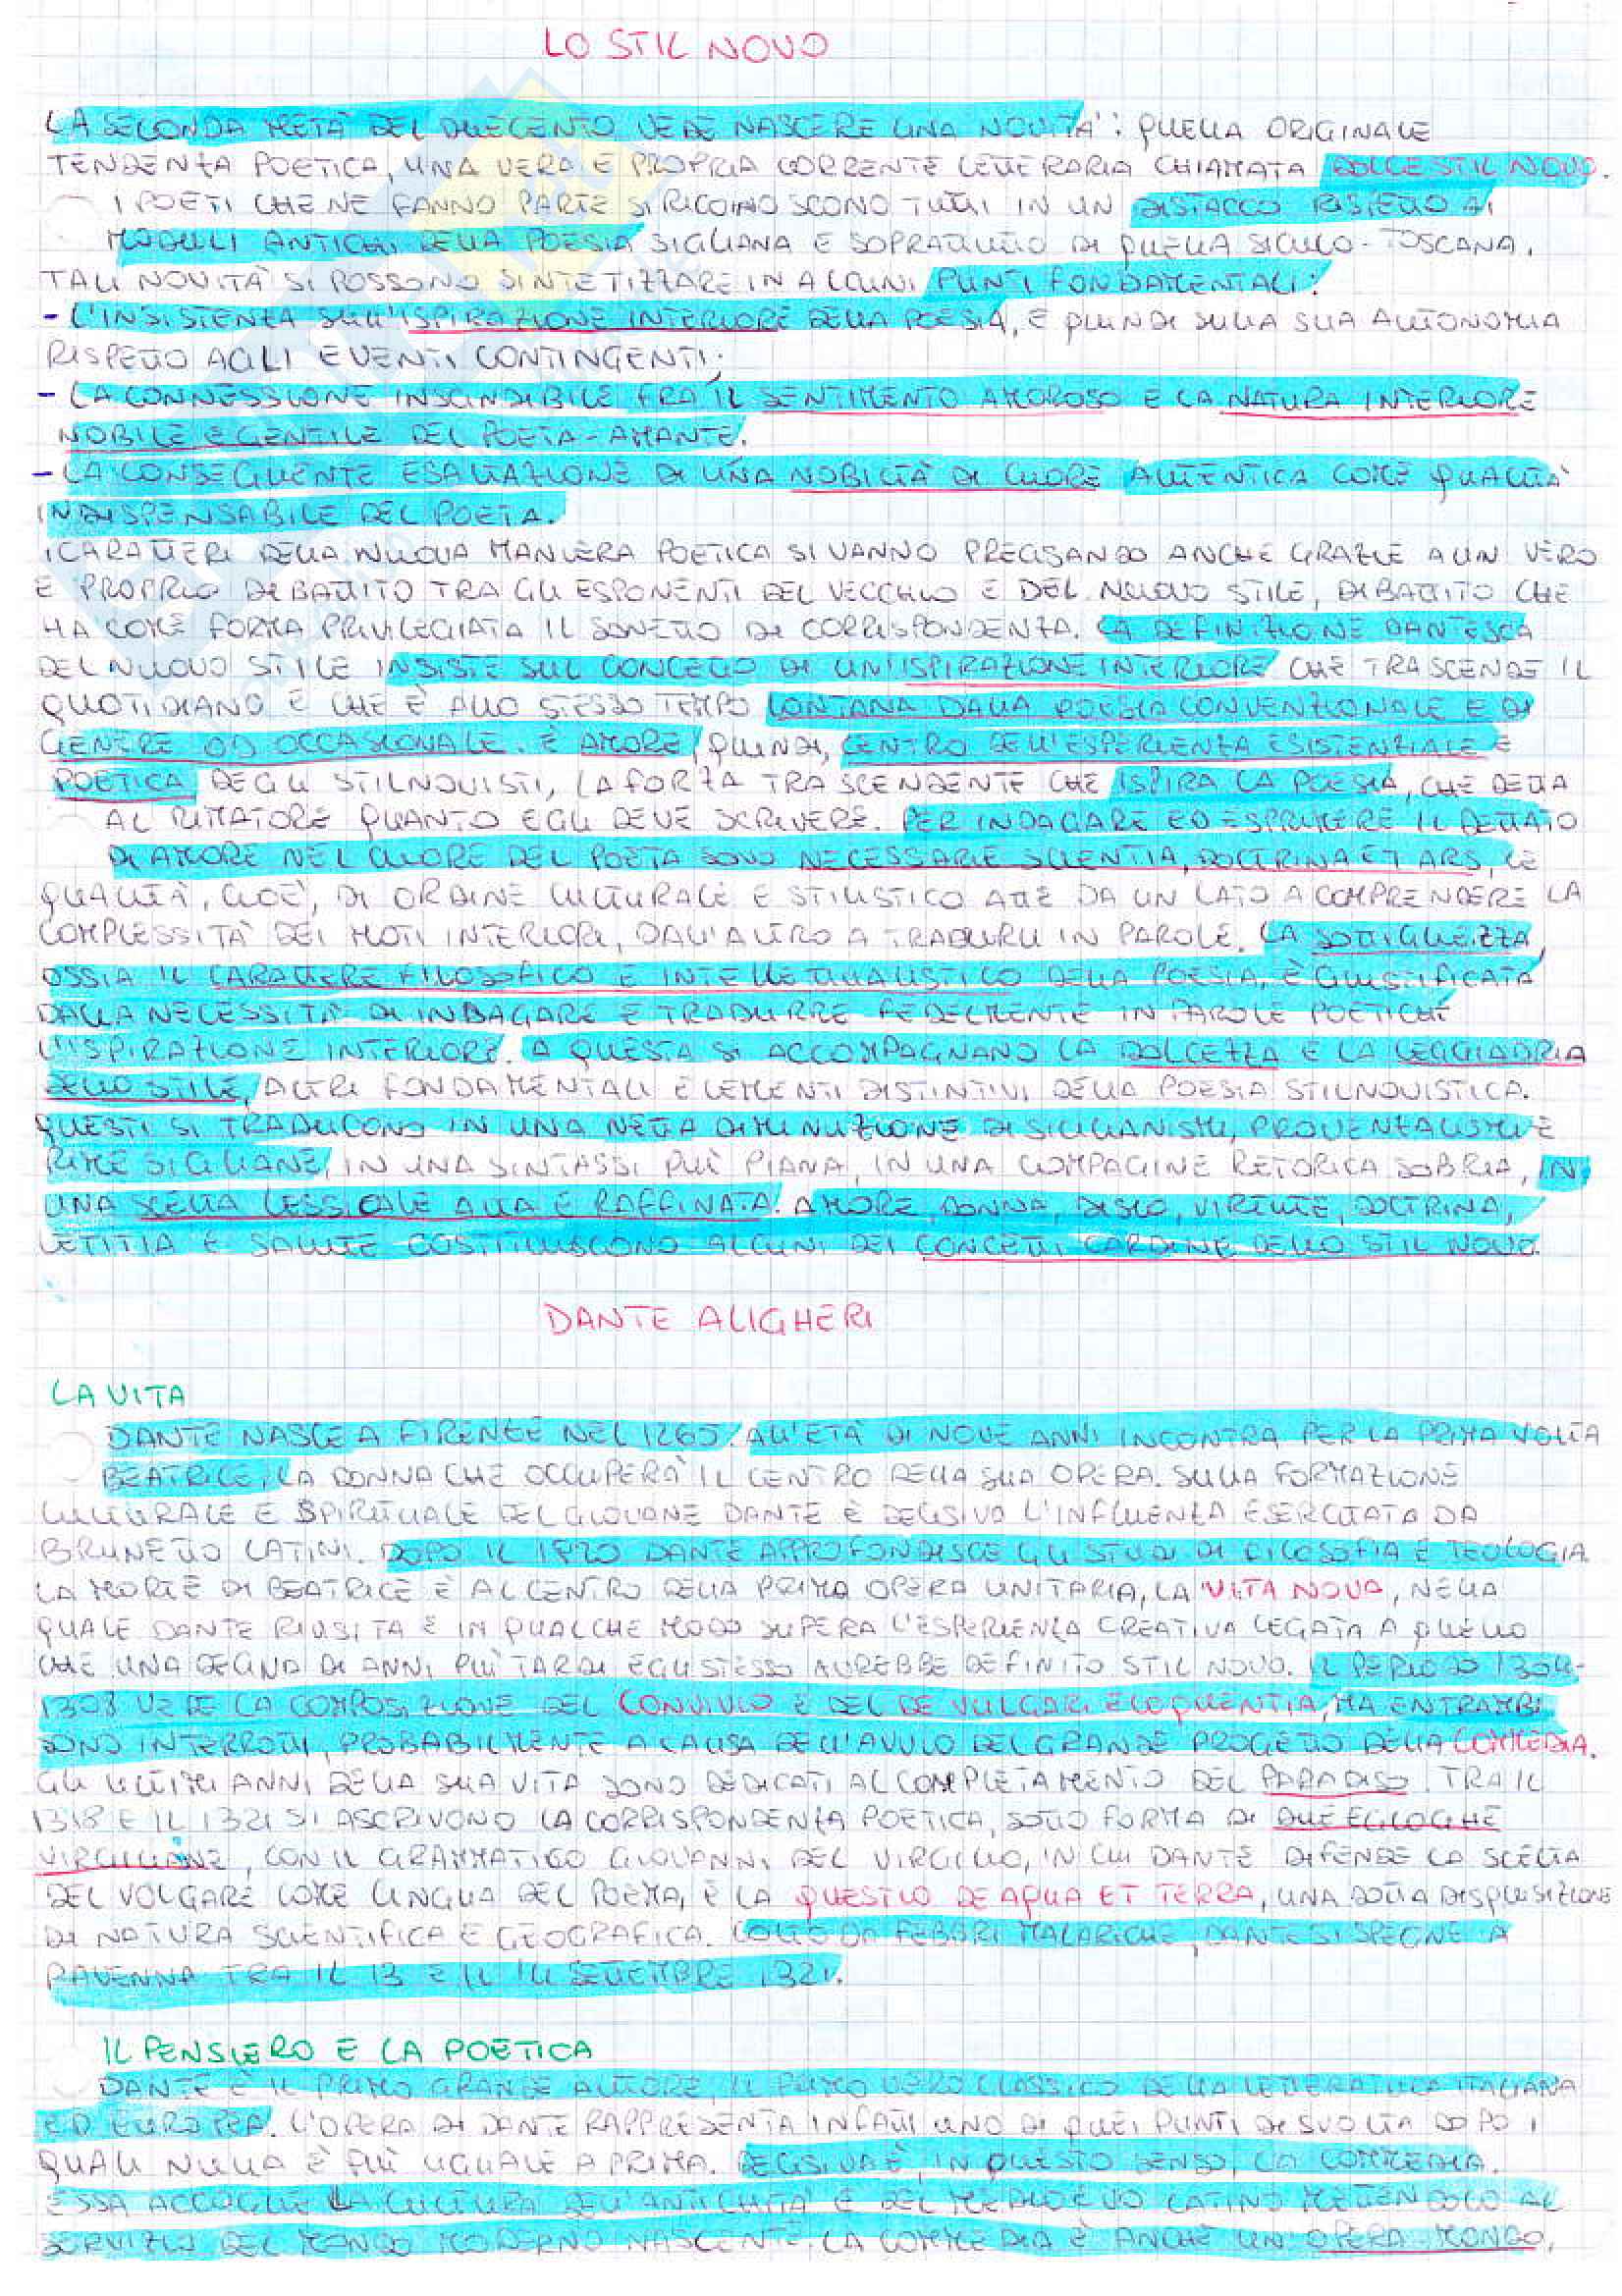 LO STIL NOVO
LA SECONDA METÀ DEL DUECENTO VEDE NASCERE UNA NOVITÀ: QUELLA ORIGINALE
TENDENZA POETICA, UNA VERA E PROPRIA CORRENTE LETTERARIA CHIAMATA DOLCE STIL NOVO.
I POETI CHE NE FANNO PARTE SI RICONOSCONO TUTTI IN UN DISTACCO RISPETTO AI
MODULI ANTICHI DELLA POESIA SICILIANA E SOPRATTUTTO DI QUELLA SICULO-TOSCANA.
TALI NOVITÀ SI POSSONO SINTETIZZARE IN ALCUNI PUNTI FONDAMENTALI:
- L'INSISTENZA SULL'ISPIRAZIONE INTERIORE DELLA POESIA, E QUINDI SULLA SUA AUTONOMIA
RISPETTO AGLI EVENTI CONTINGENTI;
- LA CONNESSIONE INSCINDIBILE FRA IL SENTIMENTO AMOROSO E LA NATURA INTERIORE
NOBILE E GENTILE DEL POETA-AMANTE.
- LA CONSEGUENTE ESALTAZIONE DI UNA NOBILTÀ DI CUORE AUTENTICA COME QUALITÀ
INDISPENSABILE DEL POETA.
I CARATTERI DELLA NUOVA MANIERA POETICA SI VANNO PRECISANDO ANCHE GRAZIE A UN VERO
E PROPRIO DIBATTITO TRA GLI ESPONENTI DEL VECCHIO E DEL NUOVO STILE, DIBATTITO CHE
HA COME FORMA PRIVILEGIATA IL SONETTO DI CORRISPONDENZA. LA DEFINIZIONE DANTESCA
DEL NUOVO STILE INSISTE SUL CONCETTO DI UN'ISPIRAZIONE INTERIORE CHE TRASCENDE IL
QUOTIDIANO E CHE È ALLO STESSO TEMPO LONTANA DALLA POESIA CONVENZIONALE E DI
GENERE OD OCCASIONALE. È AMORE, QUINDI, CENTRO DELL'ESPERIENZA ESISTENZIALE E
POETICA DEGLI STILNOVISTI, LA FORZA TRASCENDENTE CHE ISPIRA LA POESIA, CHE DETTA
AL RIMATORE QUANTO EGLI DEVE SCRIVERE. PER INDAGARE ED ESPRIMERE IL DETTATO
DI AMORE NEL CUORE DEL POETA SONO NECESSARIE SCIENTIA, DOCTRINA ET ARS, LE
QUALITÀ, CIOÈ, DI ORDINE CULTURALE E STILISTICO ATTE DA UN LATO A COMPRENDERE LA
COMPLESSITÀ DEI MOTI INTERIORI, DALL'ALTRO A TRADURLI IN PAROLE. LA SOTTIGLIEZZA,
OSSIA IL CARATTERE FILOSOFICO E INTELLETTUALISTICO DELLA POESIA, È GIUSTIFICATA
DALLA NECESSITÀ DI INDAGARE E TRADURRE FEDELMENTE IN PAROLE POETICHE
L'ISPIRAZIONE INTERIORE. A QUESTA SI ACCOMPAGNANO LA DOLCEZZA E LA LEGGIADRIA
DELLO STILE, ALTRI FONDAMENTALI ELEMENTI DISTINTIVI DELLA POESIA STILNOVISTICA.
QUESTI SI TRADUCONO IN UNA NETTA DIMINUZIONE DI SICILIANISMI, PROVENZALISMI E
RIME SICILIANE, IN UNA SINTASSI PIÙ PIANA, IN UNA COMPAGINE RETORICA SOBRIA, IN
UNA SCELTA LESSICALE ALTA E RAFFINATA. AMORE, DONNA, DISIO, VIRTUTE, DOCTRINA,
LETITIA E SALUTE COSTITUISCONO ALCUNI DEI CONCETTI CARDINE DELLO STIL NOVO.
DANTE ALIGHERI
LA VITA
DANTE NASCE A FIRENZE NEL 1265. ALL'ETÀ DI NOVE ANNI INCONTRA PER LA PRIMA VOLTA
BEATRICE, LA DONNA CHE OCCUPERÀ IL CENTRO DELLA SUA OPERA. SULLA FORMAZIONE
CULTURALE E SPIRITUALE DEL GIOVANE DANTE È DECISIVA L'INFLUENZA ESERCITATA DA
BRUNETTO LATINI. DOPO IL DANTE APPROFONDISCE GLI STUDI DI FILOSOFIA E TEOLOGIA.
LA MORTE DI BEATRICE È AL CENTRO DELLA PRIMA OPERA UNITARIA, LA VITA NOVA, NELLA
QUALE DANTE RIVISITA E IN QUALCHE MODO SUPERA L'ESPERIENZA CREATIVA LEGATA A QUELLO
CHE UNA DECINA DI ANNI PIÙ TARDI EGLI STESSO AVREBBE DEFINITO STIL NOVO. IL PERIODO 1304-
1308 VEDE LA COMPOSIZIONE DEL CONVIVIO E DEL DE VULGARI ELOQUENTIA, MA ENTRAMBI
SONO INTERROTTI, PROBABILMENTE A CAUSA DELL'AVVIO DEL GRANDE PROGETTO DELLA COMMEDIA.
GLI ULTIMI ANNI DELLA SUA VITA SONO DEDICATI AL COMPLETAMENTO DEL PARADISO. TRA IL
1318 E IL 1321 SI ASCRIVONO LA CORRISPONDENZA POETICA, SOTTO FORMA DI DUE EGLOGHE
VIRGILIANE, CON IL GRAMMATICO GIOVANNI DEL VIRGILIO, IN CUI DANTE DIFENDE LA SCELTA
DEL VOLGARE COME LINGUA DEL POEMA, E LA QUESTIO DE AQUA ET TERRA, UNA DOTTA DISQUISIZIONE
DI NATURA SCIENTIFICA E GEOGRAFICA. COLTO DA FEBBRI MALARICHE, DANTE SI SPEGNE A
RAVENNA TRA IL 13 E IL 14 SETTEMBRE 1321.
IL PENSIERO E LA POETICA
DANTE È IL PRIMO GRANDE AUTORE, IL PRIMO VERO CLASSICO DELLA LETTERATURA ITALIANA
ED EUROPEA. L'OPERA DI DANTE RAPPRESENTA INFATTI UNO DI QUEI PUNTI DI SVOLTA DOPO I
QUALI NULLA È PIÙ UGUALE A PRIMA. DECISIVA È, IN QUESTO SENSO, LA COMMEDIA.
ESSA ACCOGLIE LA CULTURA DELL'ANTICHITÀ E DEL MEDIOEVO LATINO METTENDOLO AL
SERVIZIO DEL MONDO MODERNO NASCENTE. LA COMMEDIA È ANCHE UN'OPERA-MONDO,